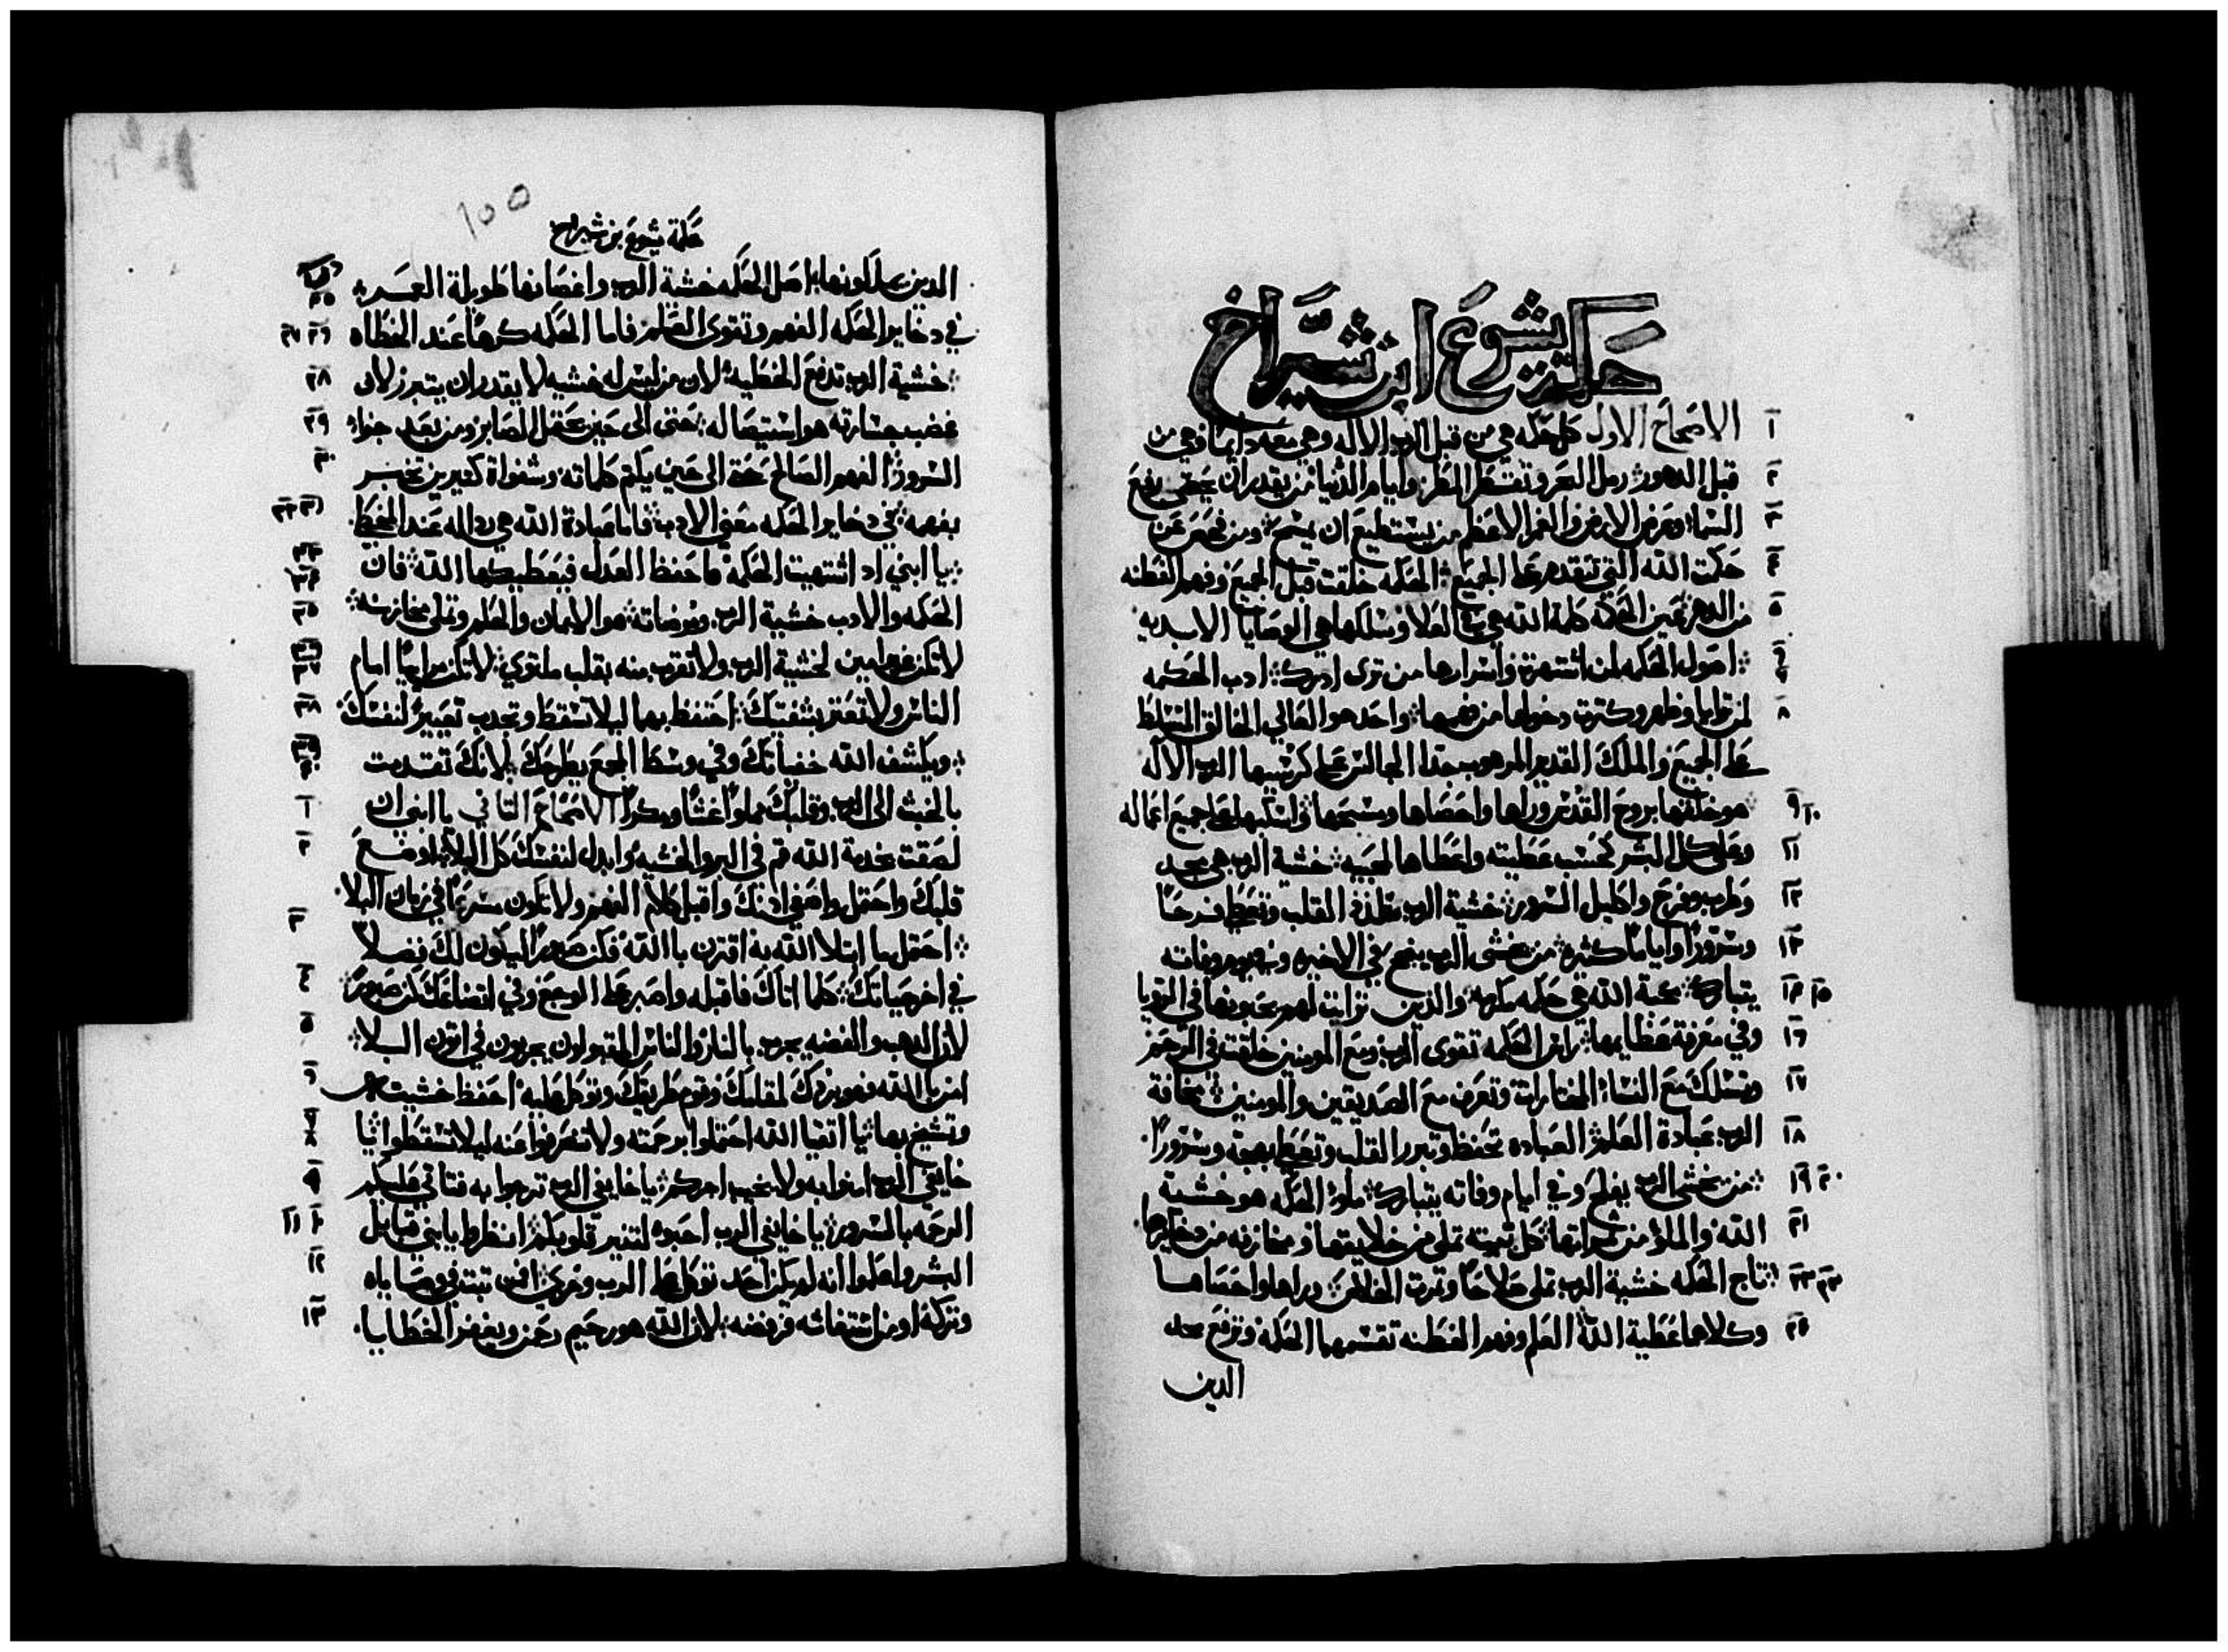 حكمة يشوع ابن شيراخ
الاصحاح الاول كل حكمه هي من قبل الرب الاله وهي معه دايما وهي من
قبل الدهور رمل البحر ونقط المطر وايام الدنيا من يقدر ان يحصي رفع
السماء وعرض الارض والغمر الاعظم من يستطيع ان يسح ومن فحص عن
حكمت الله التي تتقدم على الجميع الحكمه خلقت قبل الجميع وفهم الفطنه
من الدهر عين الحكمة كلمة الله هي في العلا ومسلكها هي الوصايا الابديه
اصول الحكمه لمن اشتهرة واسرارها من ترى ادرك ادب الحكمه
لمن وظهر وكثرت دخولها من فهمها واحد هو العالي الخالق المتسلط
على الجميع والملك القدير المرهوب جدا الجالس على كرسيها الرب الاله
هو خلقها بروح القدس وراها واحصاها ومسحها واسكبها على جميع اعماله
وعلى كل البشر كحسب عطيته واعطاها لمحبيه خشية الرب هي مجد
وطرب وفرح واكليل السرور خشية الرب تلذذ القلب وتعطي فرحا
وسرورا واياما كثيره من يخشى الرب ينجح في الاخره وفي يوم وفاته
يتبارك محبة الله هي حكمه مكرمه والذين تراات لهم يحبونها في الرويا
وفي معرفة عظايمها راس الحكمه تقوى الرب ومع المومنين خلقت في الرحم
وتسلك مع النساء المختارات وتعرف مع الصديقين والمومنين مخافة
الرب عبادة العلم العباده تحفظ وتبرر القلب وتعطي بهجة وسرورا
من يخشى الرب يفلح وفي ايام وفاته يتبارك ملو الحكمه هو خشية
الله والملو من ثمراتها كل بيته تملى من خلايقها ومخازنه من دخايرها
تاج الحكمه خشية الرب تملى صلاحا وثمرت الخلاص وراها واحصاها
وكلاهما عطية الله العلم وفهم الفطنه تقسمهما الحكمة وترفع مجد
الدين
١٥٥
حكمة يشوع بن شيراخ
الدين يملكونها اصل الحكمه خشية الرب واغصانها طويلة العمر
في دخاير الحكمه الفهم وتقوى العلم فاما الحكمه كرها عند الخطاه
خشية الرب تدفع الخطيه لان من ليس له خشيه لا يقدر ان يتبرر لان
غضب جسارته هو استيصاله حتى الى حين يحتمل الصابر ومن بعد جزاء
السرور الفهم الصالح حتى الى حين يكتم كلماته وشفواة كثيرين تخبر
بفهمه في دخاير الحكمه معنى الادب فاما عبادة الله هي رداله عند الخطا
يا ابني اد اشتهيت الحكمة فاحفظ العدل فيعطيكها الله فان
الحكمه والادب خشية الرب ومرضاته هو الايمان والحلم وتملى مخازنه
لا تكن غير امين لخشية الرب ولا تقرب منه بقلب ملتوي لا تكن مراييا امام
الناس ولا تعتر بشفتيك احتفظ بهما ليلا تسقط وتجلب تعييرا لنفسك
ويكشف الله خفياتك وفي وسط الجمع يطرحك لانك تقدمت
بالخبث الى الرب وقلبك مملوا غشا ومكرا الاصحاح الثاني يا ابني ان
لصقت بخدمة الله قم في البر والخشيه وابدل لنفسك كل البلايا وضع
قلبك واحتمل واصغي ادنك واقبل كلام الفهم ولا تكون سرعا في زمان البلا
احتمل ما ابتلا الله به اقترن باالله فكن صبورا ليكون لك فضلا
في اخر حياتك كلما اتاك فاقبله واصبر على الوجع وفي اتضاعك كن صبورا
لان الدهب والفضه يجرب بالنار والناس المقبولون يجربون في اتون البلا
امن بالله فهو يردك لقلبك وقوم طريقك وتوكل عليه احفظ خشيت
وتشيخ بها يا اتقيا الله احتملوا برحمته ولا تعرضوا عنه ليلا تسقطوا يا
خايفي الرب امنوا به ولا يخيب اجركم يا خايفي الرب ترجوا به فتاتي عليكم
الرحمه بالسرور يا خايفي الرب احبوه لتنير قلوبكم انظروا يا بني قبايل
البشر واعلموا انه لم يكن احد توكل على الرب وخزي افمن تبت في وصاياه
وتركه او من استغاثه فرفضه لان الله هو رحيم رحمن ويغفر الخطايا